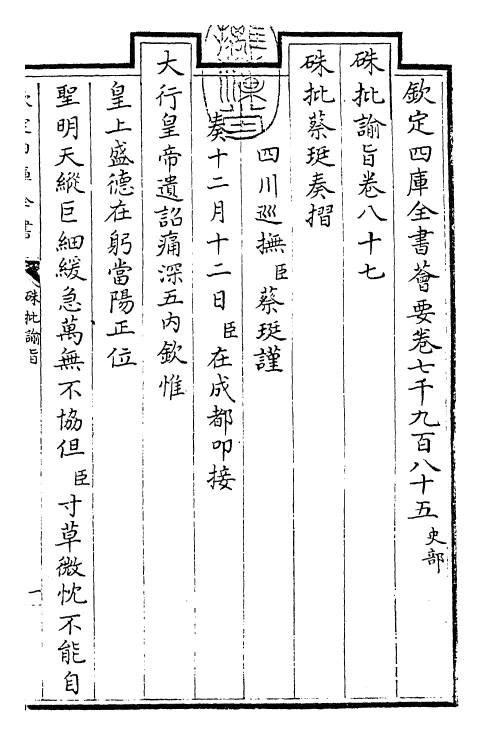 欽定四庫全書薈要卷七千九百八十五 史部
硃批諭旨卷八十七
硃批蔡珽奏摺
四川巡撫臣蔡珽謹
奏十二月十二日臣在成都叩接
大行皇帝遺詔痛深五內欽惟
皇上盛德在躬當陽正位
聖明天縱巨細緩急萬無不協但臣寸草微忱不能自
欽定四庫全書
硃批諭旨
一